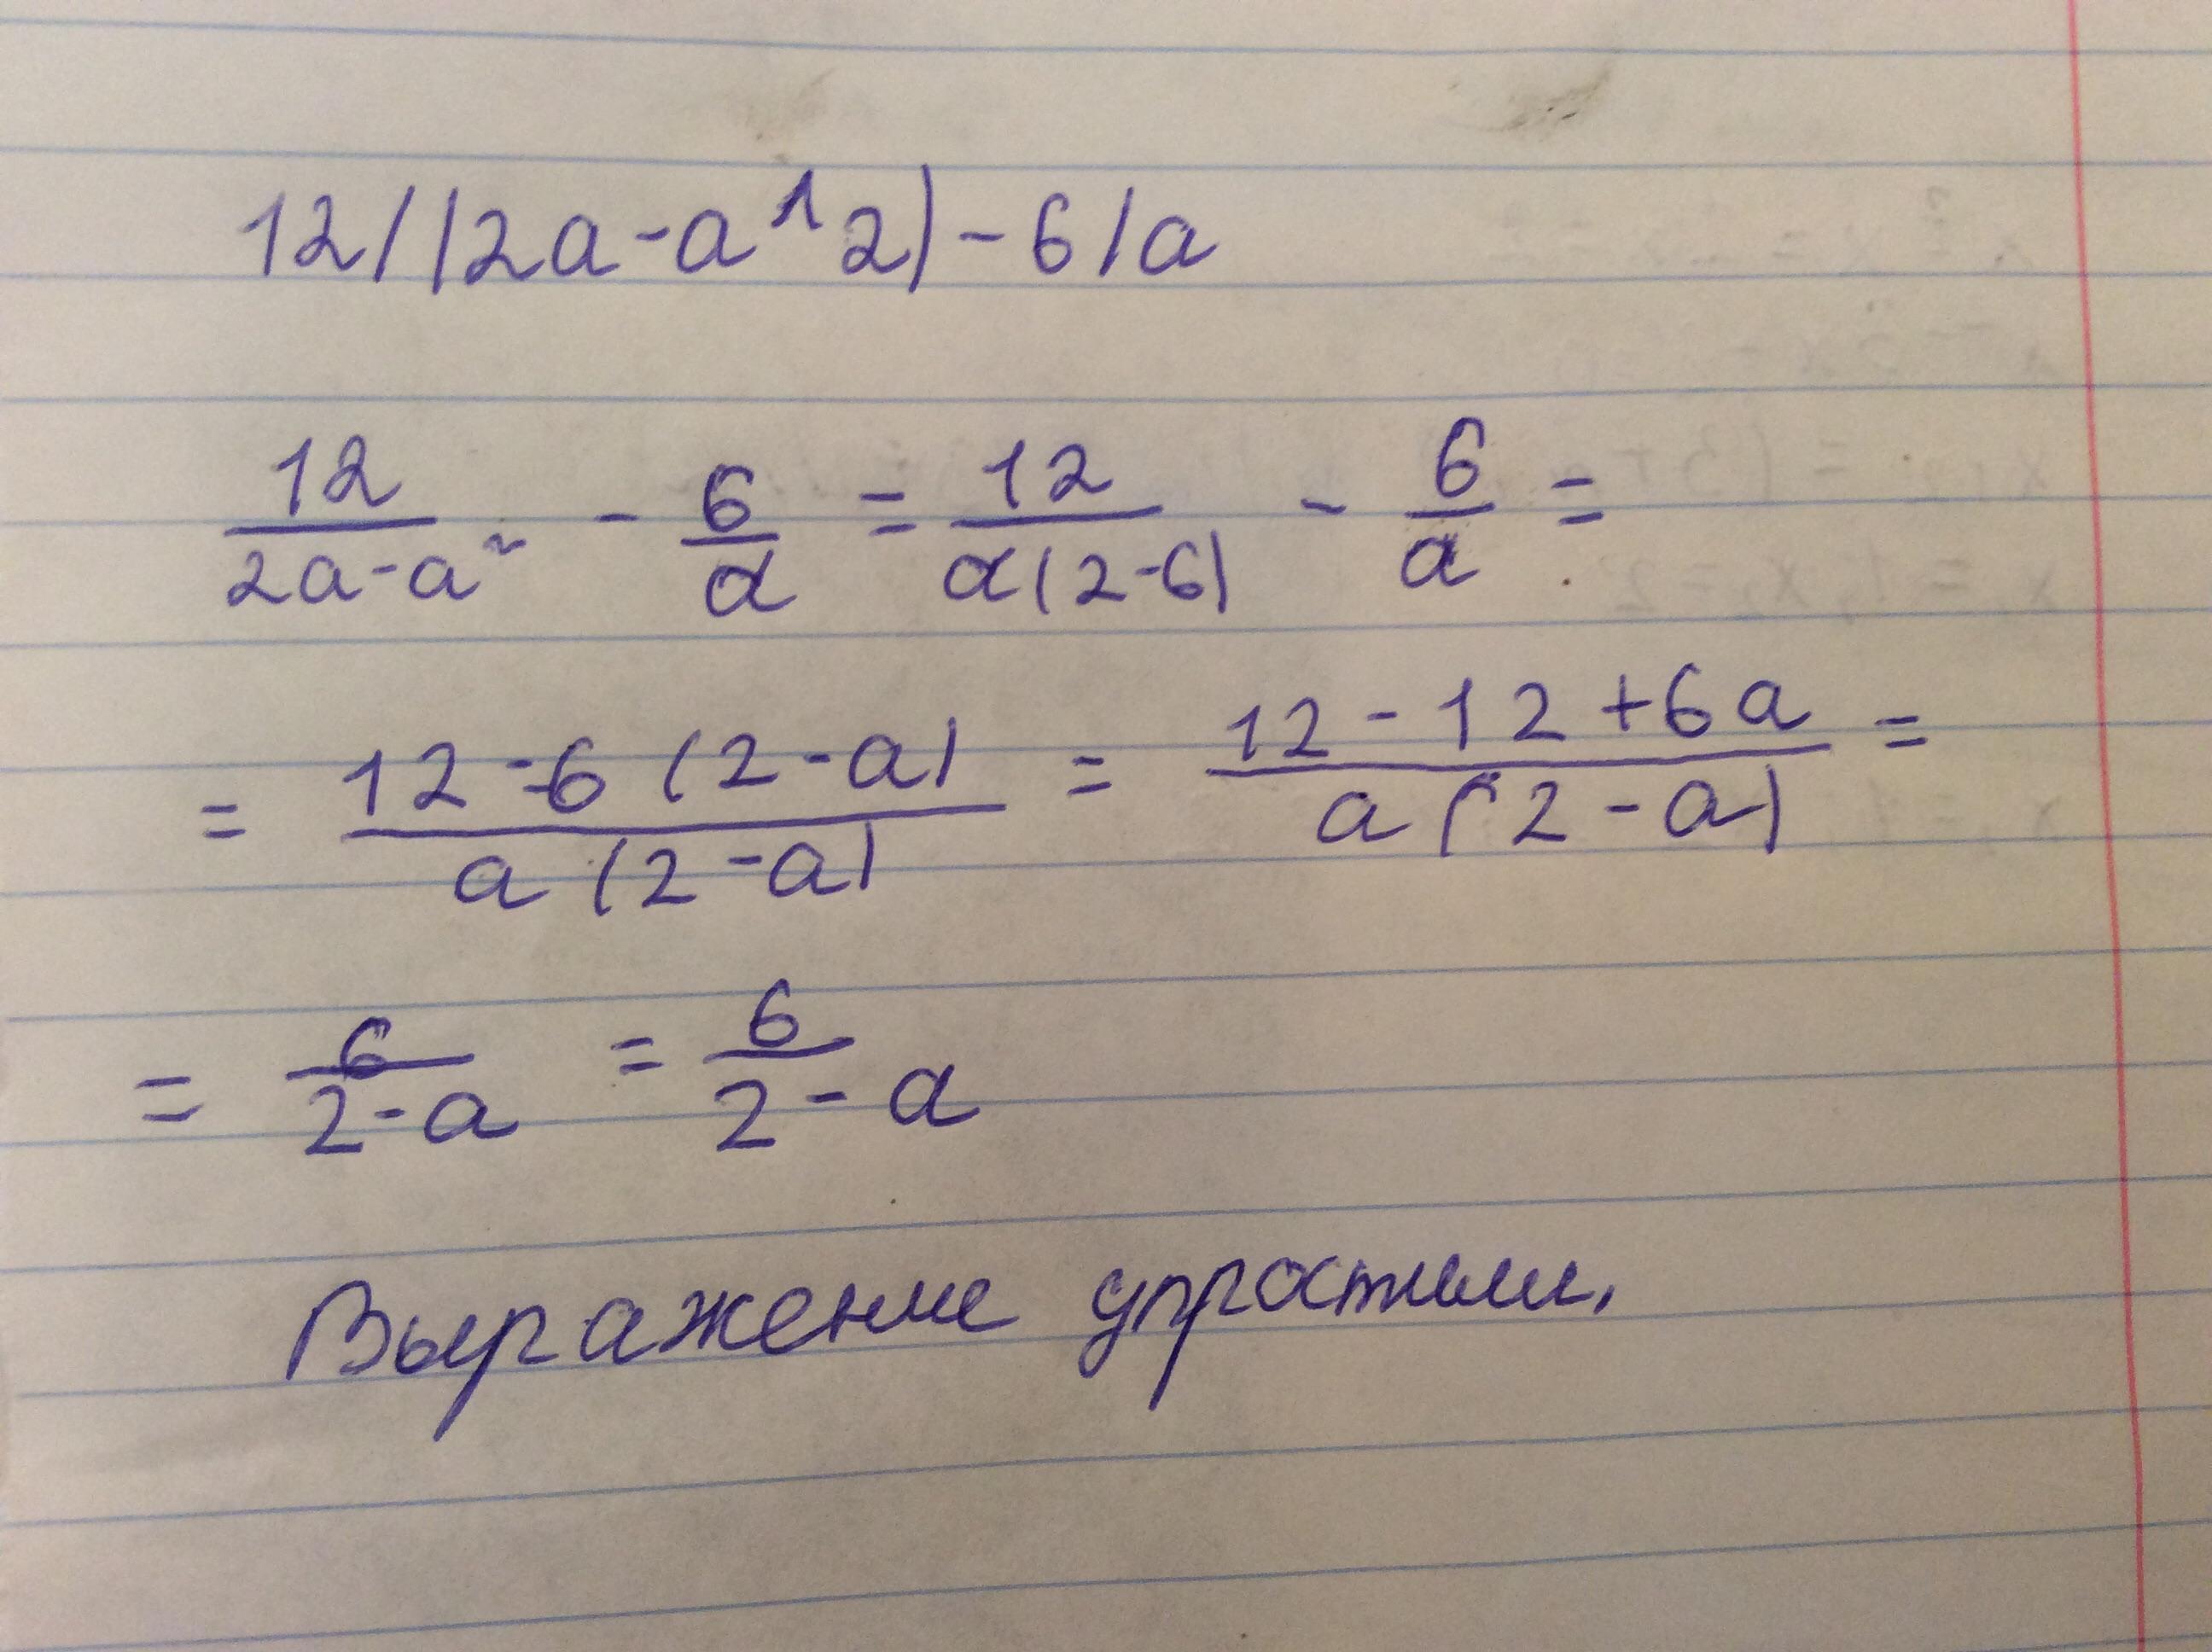 12/(2a-a^2)-6/a
12/(2a-a²) - 6/a = 12/(a(2-6)) - 6/a =
= (12-6(2-a))/(a(2-a)) = (12-12+6a)/(a(2-a)) =
= 6/(2-a) = 6/(2-a)
Выражение упростили.